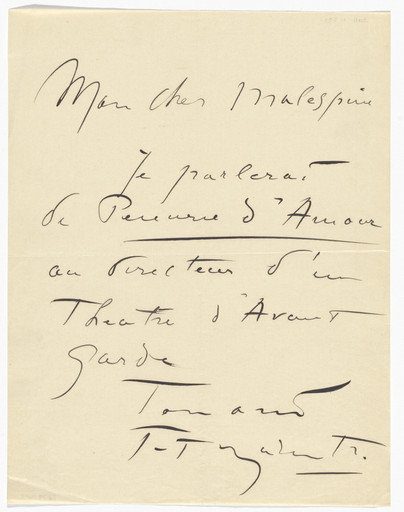 Mon cher Malespine
Je parlerai
de Penurie d'Amour
au directeur d'un
Theatre d'Avant
Garde
Ton ami
F-T Marinetti